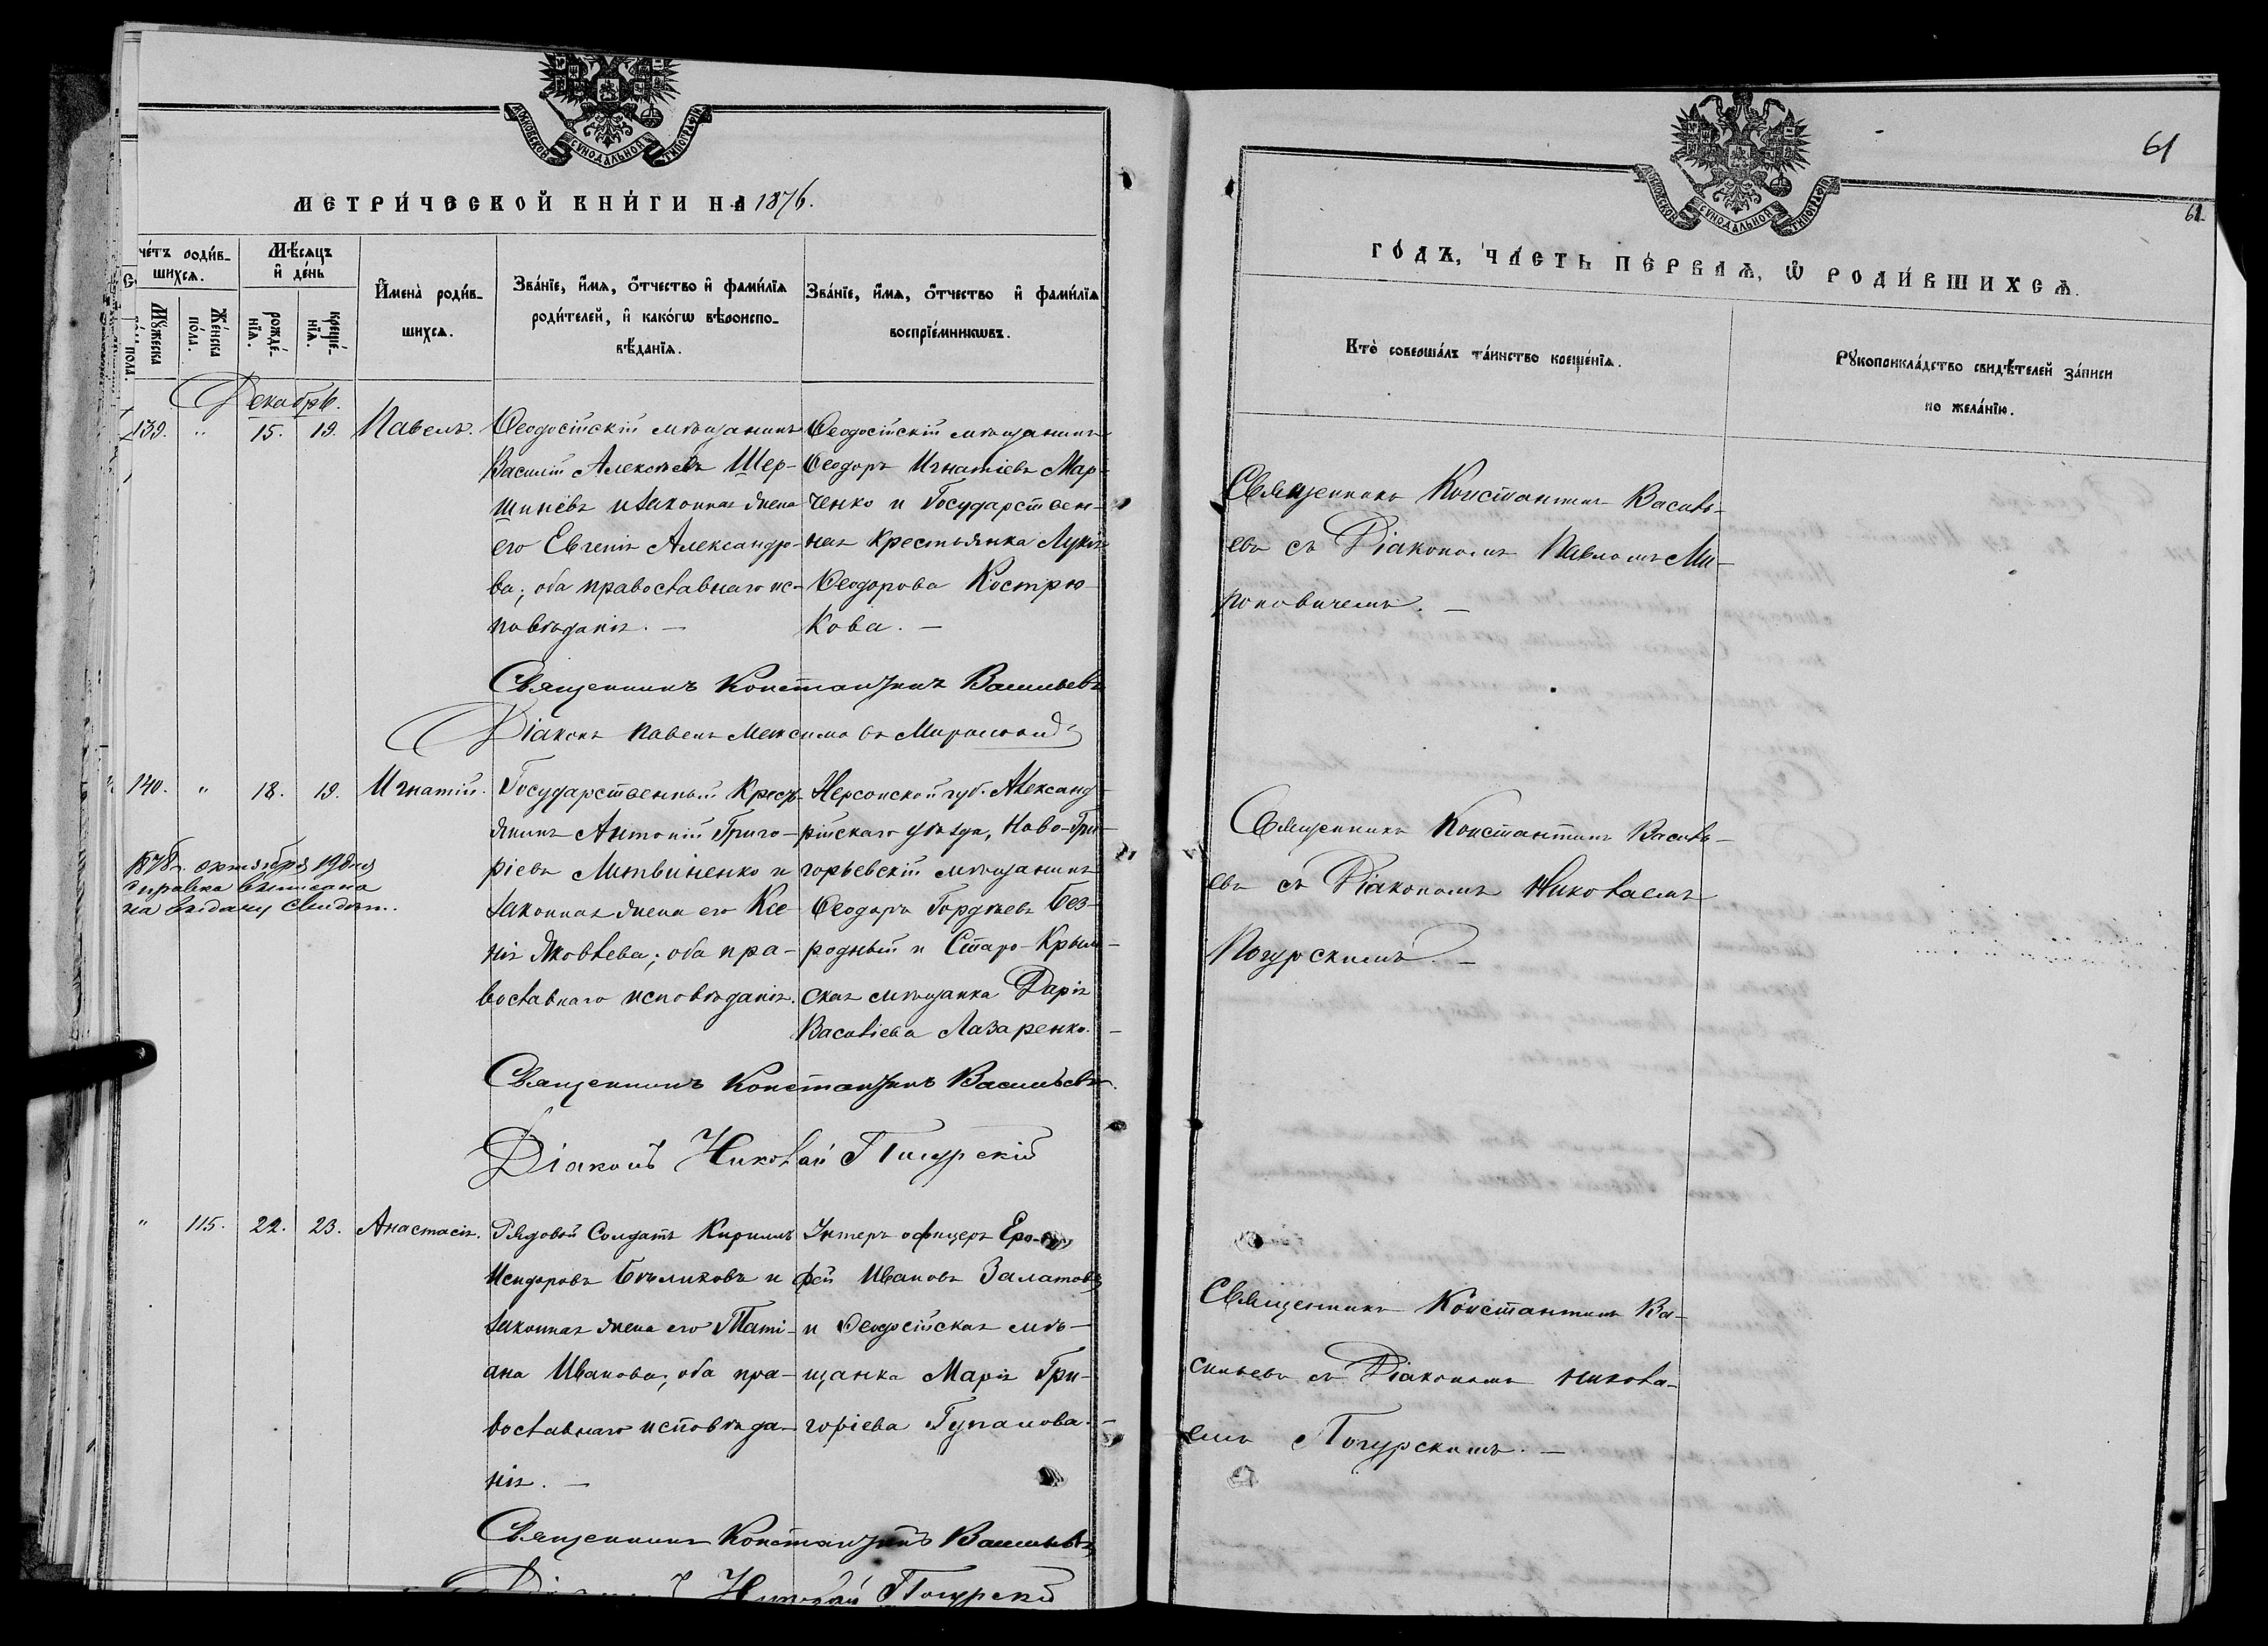 МОСКОВСКОЙ СѴНОДАЛЬНОЙ ТИПОГРАФІИ
МЕТРИ́ЧЕСКОЙ КНИ́ГИ НА 1876.
че́тъ роди́в-
шихсѧ.
Мѣ́сѧцъ
и҆ де́нь
Мꙋ́жеска
по́ла.
Же́нска
по́ла.
рожде́-
нїѧ.
креще́-
нїѧ.
И҆мена̀ роди́в-
шихсѧ.
Зва́нїе, и҆́мѧ, ѻ҆́тчество и҆ фами́лїѧ
роди́телей, и҆ како́гѡ вѣроиспо-
вѣ́данїѧ.
Зва́нїе, и҆́мѧ, ѻ҆́тчество и҆ фами́лїѧ
воспрїе́мникѡвъ.
Декабрь.
139. " 15. 19. Павелъ.
Ѳеодосійскій мѣщанинъ
Василій Алексѣевъ Шер-
шинёвъ и законная жена
его Евгенія Александро-
ва; оба православнаго ис-
повѣданія. —
Ѳеодосійскій мѣщанинъ
Ѳеодоръ Игнатіевъ Мар-
ченко и Государствен-
ная крестьянка Лукія
Ѳеодорова Кострю-
кова. —
Священникъ Константинъ Васильевъ
Діаконъ Павелъ Максимовъ
140. " 18. 19. Игнатій.
1878г. октября 19 дня
справка выписана
на выдачу свидѣт..
Государственный Крест-
янинъ Антоній Григо-
ріевъ Литвиненко и
законная жена его Ксе-
нія Яковлева; оба пра-
вославнаго исповѣданія.
Херсонской губ. Александ-
рійскаго уѣзда, Ново-Гри-
горьевскій мѣщанинъ
Ѳеодоръ Гордѣевъ Без-
родный и Старо-Крым-
ская мѣщанка Дарія
Василіева Лазаренко. —
Священникъ Константинъ Васильевъ.
Діаконъ Николай Погурскій
" 115. 22. 23. Анастасія.
Рядовой Солдатъ Кириллъ
Исидоровъ Бѣликовъ и
законная жена его Таті-
ана Иванова; оба пра-
вославнаго исповѣда-
нія. —
Унтеръ офицеръ Еро-
фей Ивановъ Залатовъ
и Ѳеодосійская мѣ-
щанка Марія Гри-
горіева Гупалова. —
Священникъ Константинъ Васильевъ
Діаконъ Николай Погурскій
61
МОСКОВСКОЙ СѴНОДАЛЬНОЙ ТИПОГРАФІИ
61
ГО́ДЪ, ЧА́СТЬ ПЕ́РВАѦ, Ѡ҆ РОДИ́ВШИХСѦ.
Кто̀ соверша́лъ та́инство креще́нїѧ.
Рꙋкоприкла́дство свидѣ́телей за́писи
по жела́нїю.
Священникъ Константинъ Василь-
евъ съ Діакономъ Павломъ Ми-
роновичемъ. —
Священникъ Константинъ Василь-
евъ съ Діакономъ Николаемъ
Погурскимъ. —
Священникъ Константинъ Ва-
сильевъ съ Діакономъ Никола-
емъ Погурскимъ. —